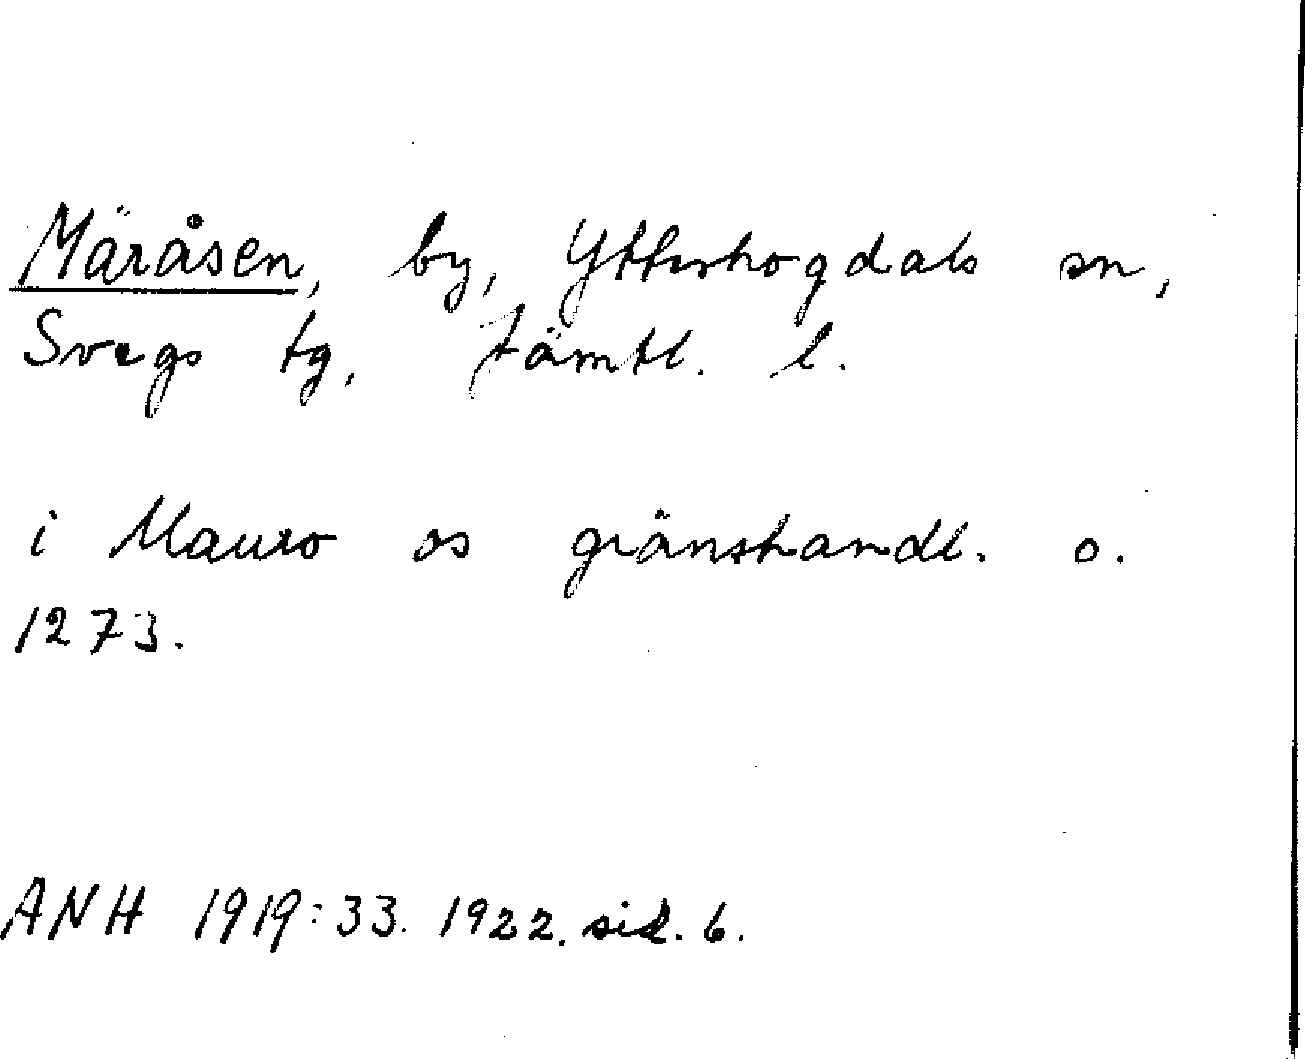 Märåsen, by, Ytterhogdals sn,
Svegs tg, Jämtl. l.
i Mauro os gränshandl. o.
1273.
ANH 1919:33. 1922. sid. 6.